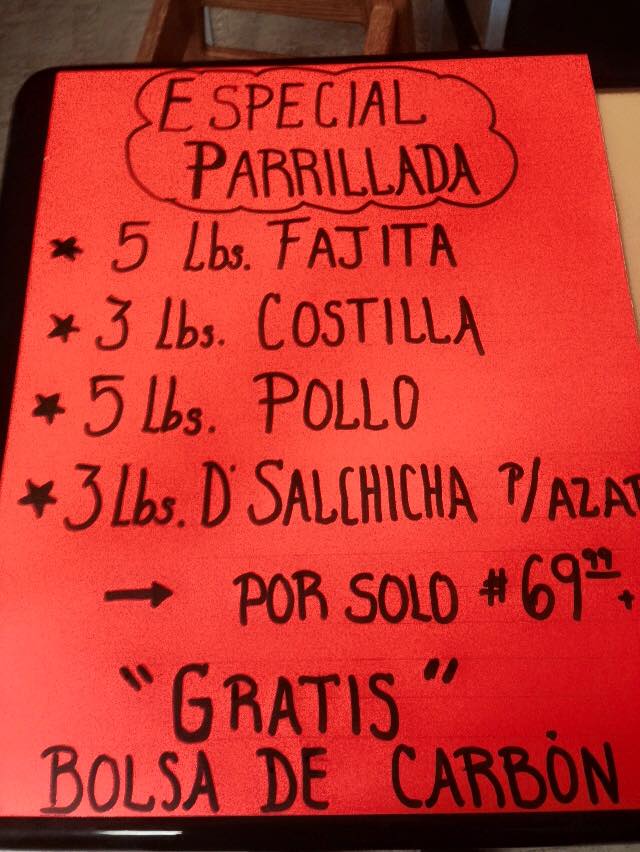 ESPECIAL
PARRILLADA
★ 5 Lbs. FAJITA
★ 3 Lbs. COSTILLA
★ 5 Lbs. POLLO
★ 3 Lbs. D' SALCHICHA P/AZAR
→ POR SOLO #69.99 +
"GRATIS"
BOLSA DE CARBÓN